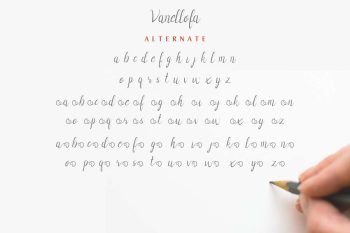 Vanellofa
ALTERNATE
a b c d e f g h i j k l m n
o p q r s t u v w x y z
oa ob oc od oe of og oh oi oj ok ol om on
oo op oq or os ot ou ov ow ox oy oz
ao bo co do eo fo go ho io jo ko lo mo no
oo po qo ro so to uo vo wo xo yo zo